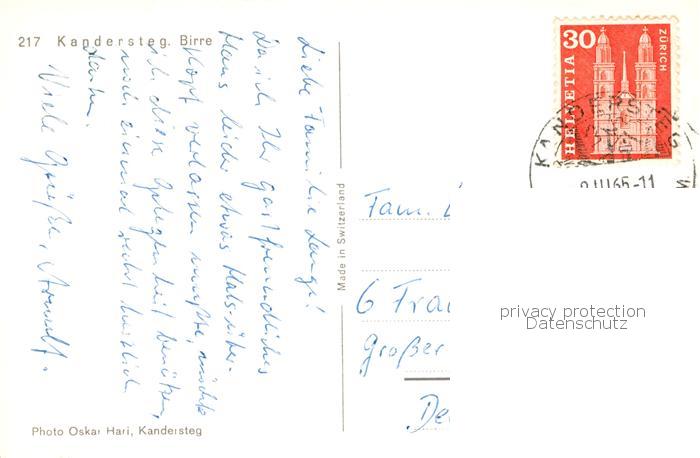 217 Kandersteg. Birre
Liebe Familie Lange!
Da ich Ihr gastfreundliches
Haus leider etwas Hals-über-
Kopf verlassen mußte, möchte
ich diese Gelegenheit benützen,
mich einmal recht herzlich
Viele Grüße,
Photo Oskar Hari, Kandersteg
Made in Switzerland
30
HELVETIA
ZÜRICH
KANDERSTEG
III 65-11
Fam. L
6 Fra
Großer
De
privacy protection
Datenschutz